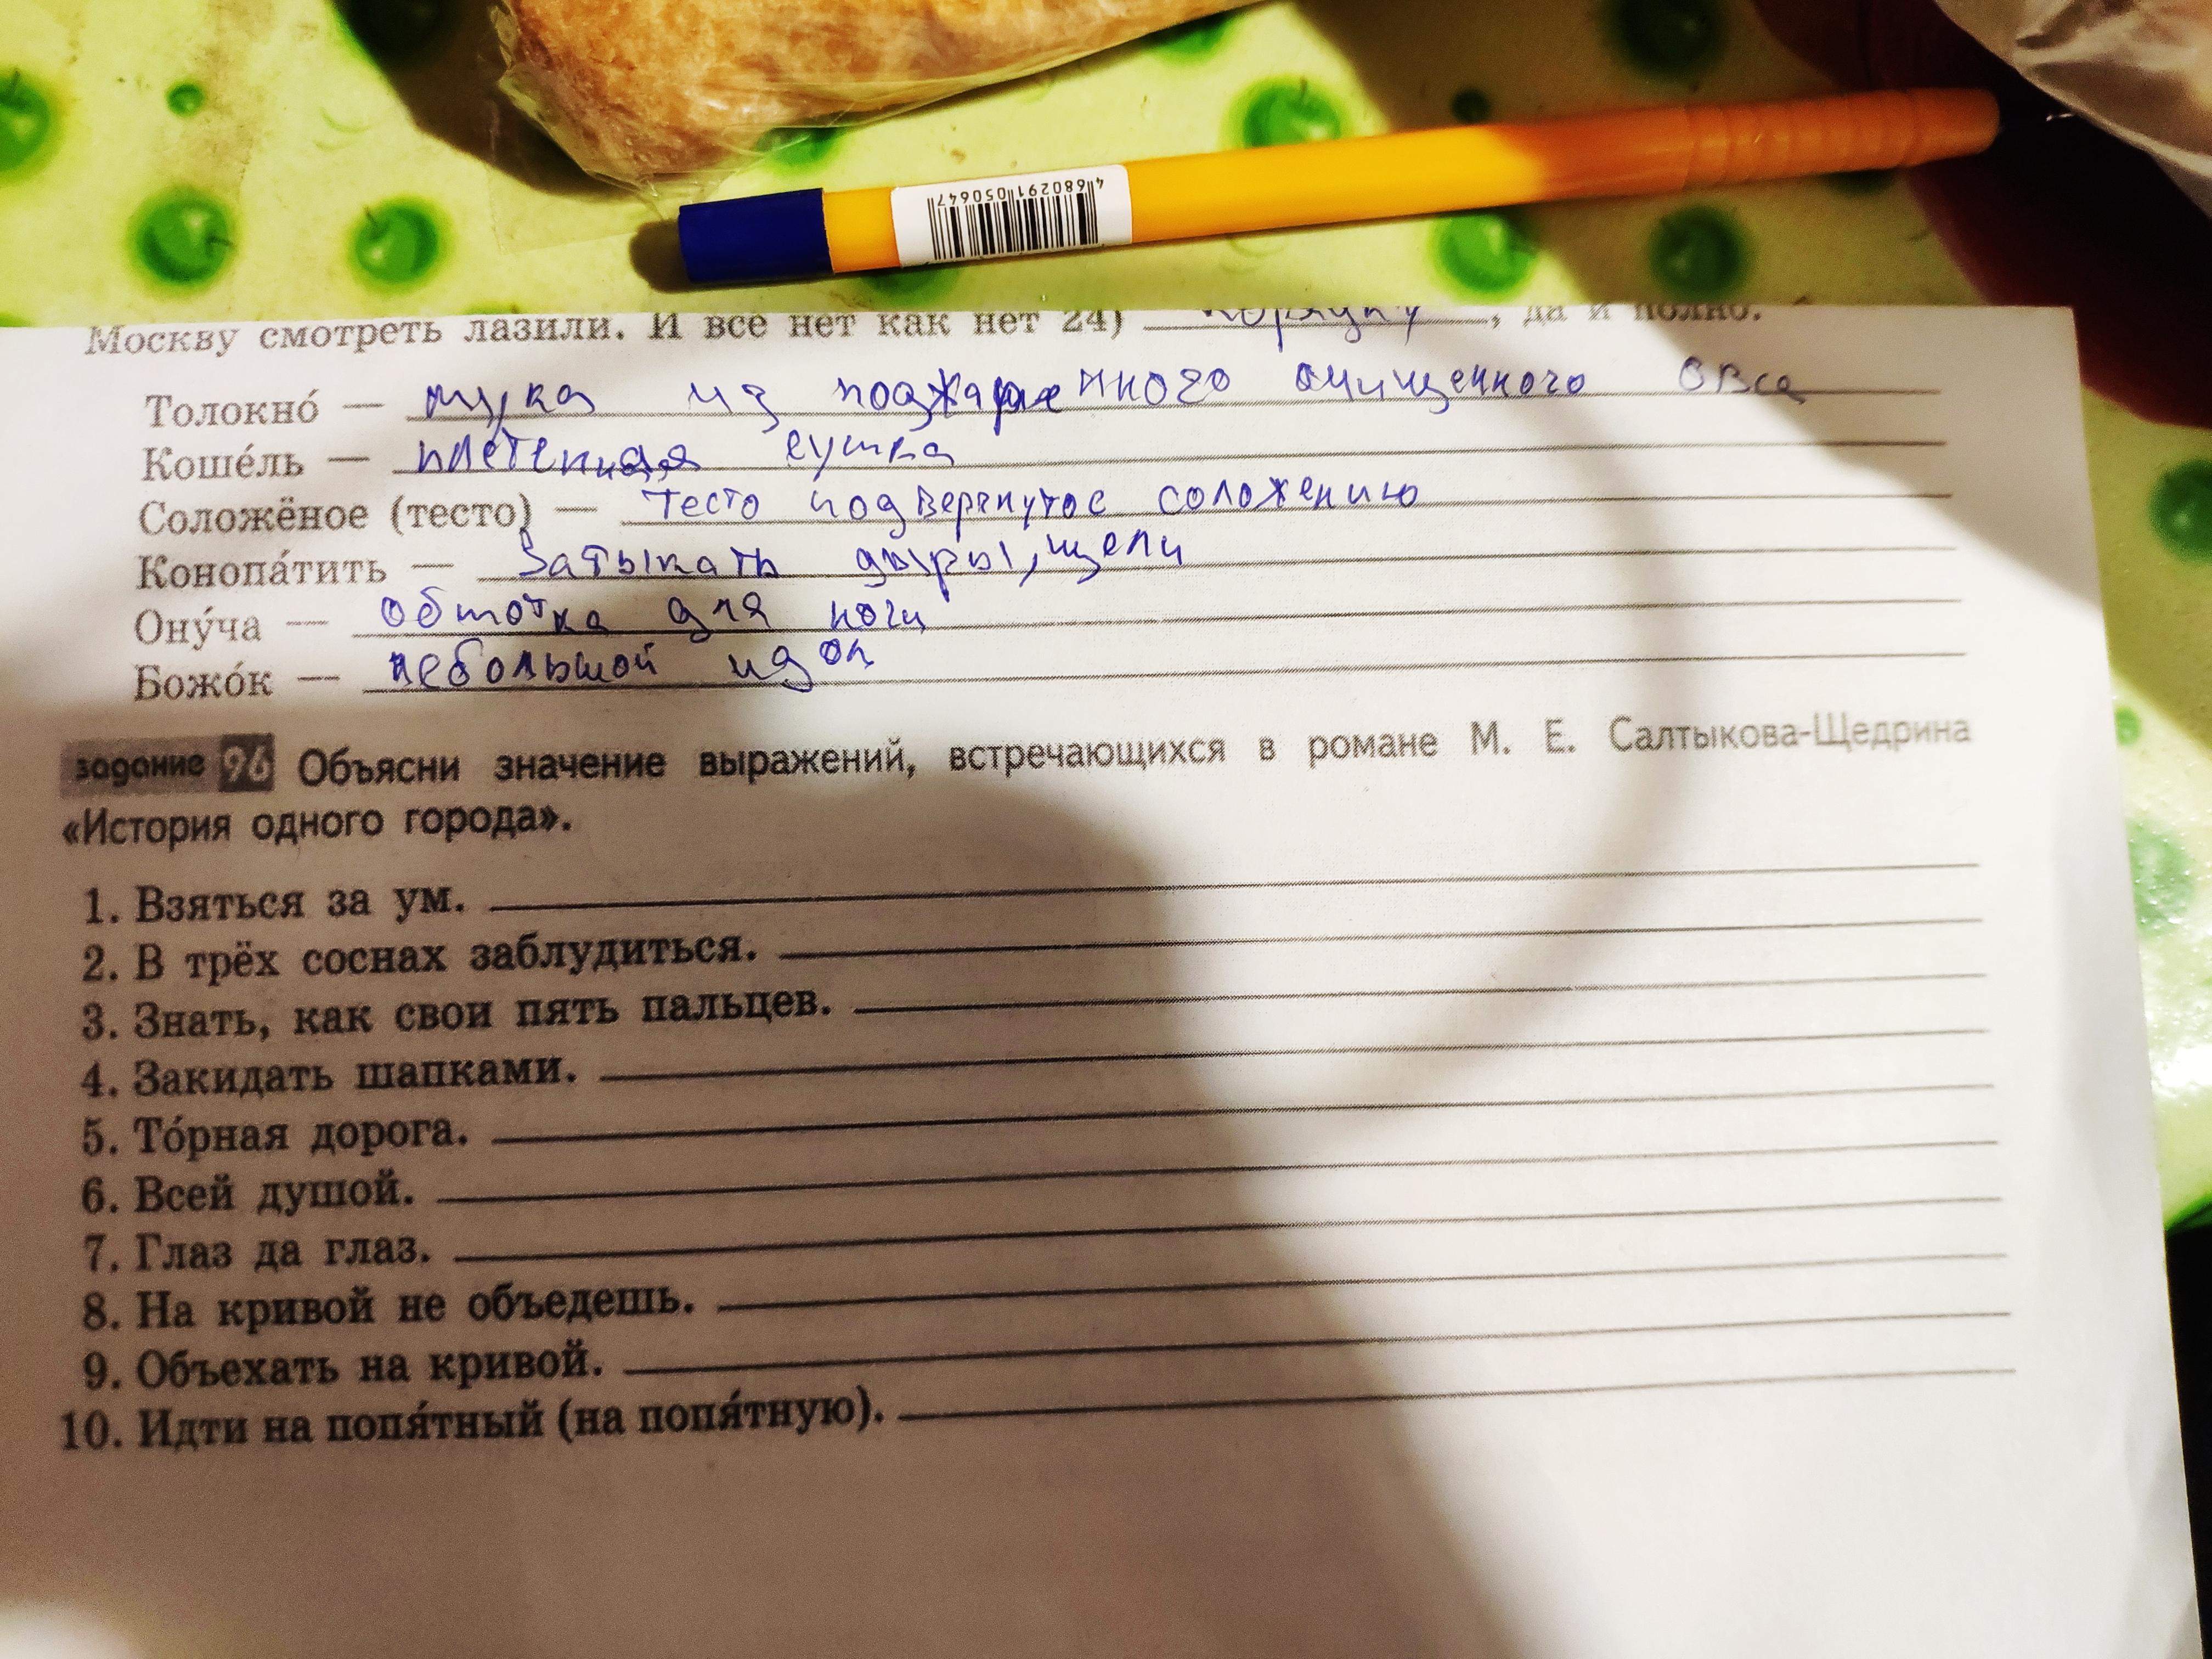 4680291050647
Москву смотреть лазили. И все нет как нет 24) порядку, да и полно.
Толокно́ — мука из поджаренного очищенного овса
Коше́ль — плетенная сумка
Соложёное (тесто) — тесто подвергнутое соложению
Конопа́тить — затыкать дыры, щели
Ону́ча — обмотка для ноги
Божо́к — небольшой идол
задание 96 Объясни значение выражений, встречающихся в романе М. Е. Салтыкова-Щедрина
«История одного города».
1. Взяться за ум.
2. В трёх соснах заблудиться.
3. Знать, как свои пять пальцев.
4. Закидать шапками.
5. То́рная дорога.
6. Всей душой.
7. Глаз да глаз.
8. На кривой не объедешь.
9. Объехать на кривой.
10. Идти на попя́тный (на попя́тную).